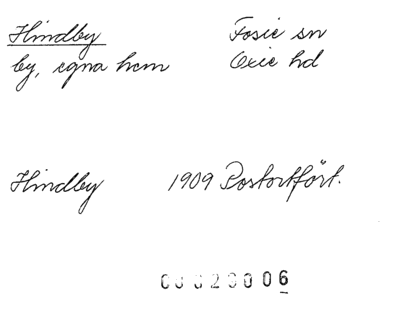 Hindby Fosie sn
by, egna hem Oxie hd
Hindby 1909 Postortför​t.
6